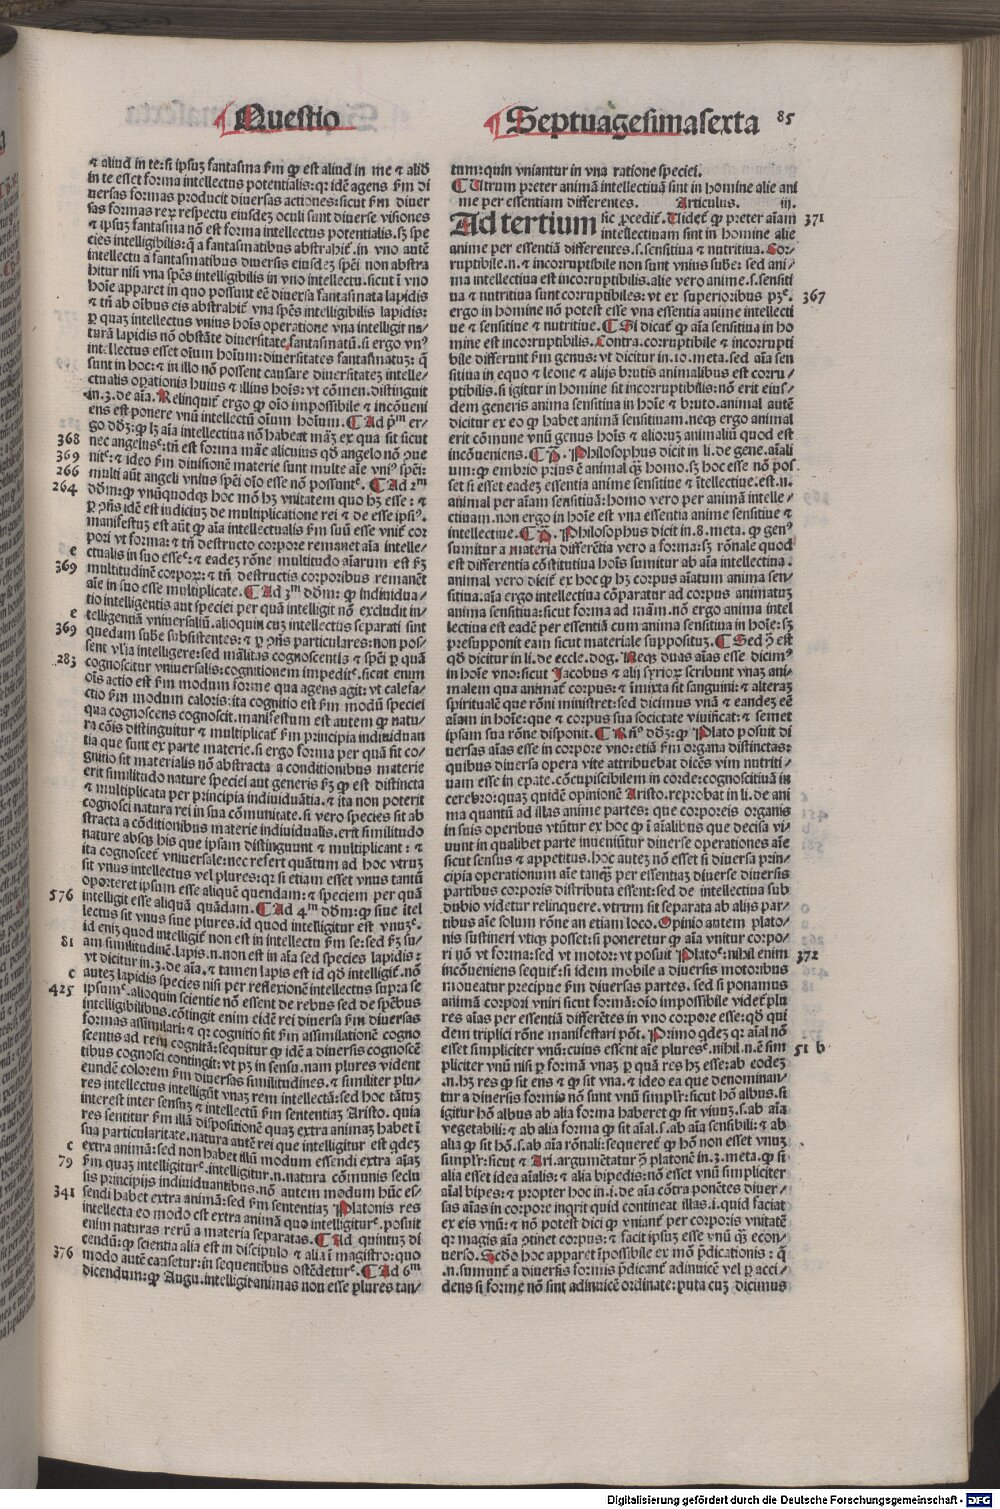 Questio
Septuagesimasexta 85
⁊ aliud in te: si ipsuꝫ fantasma ẜm ꝙ est aliud in me ⁊ aliđ
in te esset forma intellectus potentialis: qꝛ idē agens ẜm di
uersas formas producit diuersas actiones: sicut ẜm diuer
sas formas reꝝ respectu eiusdeꝫ oculi sunt diuerse visiones
⁊ ipsuꝫ fantasma nō est forma intellectus potentialis. sꝫ spe
cies intelligibilis: q̄ a fantasmatibus abstrahit᷒. in vno autē
intellectu a fantasmatibus diuersis eiusdeꝫ spēi non abstra
hitur nisi vna spēs intelligibilis in vno intellectu. sicut ī vno
hoīe apparet in quo possunt eē diuersa fantasmata lapidis
⁊ tn̄ ab oībus eis abstrahit᷒ vna spēs intelligibilis lapidis:
per quaꝫ intellectus vnius hoīs operatione vna intelligit na⸗
turā lapidis nō obstāte diuersitate fantasmatū. si ergo vnꝰ
intellectus esset oīum hoīum: diuersitates fantasmatuꝫ: q̄
sunt in hoc: ⁊ in illo nō possent causare diuersitateꝫ intelle⸗
ctualis operationis huius ⁊ illius hoīs: vt cōmen. distinguit
in .3. de aīa. Relinquit᷒ ergo ꝙ oīo impossibile ⁊ incōueni
ens est ponere vnū intellectū oīum hoīum. Ad p̄ᵐ er⸗
go dōꝫ: ꝙ lꝫ aīa intellectiua nō habeat māꝫ ex qua sit sicut
368 nec angelusᶜ: tn̄ est forma māe alicuius qđ angelo nō ꝯue
369 nitᶜ: ⁊ ideo ẜm diuisionē materie sunt multe aīe vniꝰ spēi:
266 multi aūt angeli vniꝰ spēi oīo esse nō possuntᶜ. Ad 2ᵐ
264 dōm: ꝙ vnūquodqꝫ hoc mō hꝫ vnitatem quo hꝫ esse: ⁊
per ꝯn̄s idē est iudiciuꝫ de multiplicatione rei ⁊ de esse ipsiꝰ.
manifestuꝫ est aūt ꝙ aīa intellectualis ẜm suū esse vnit᷒ cor
pori vt forma: ⁊ tn̄ destructo corpore remanet aīa intelle⸗
e ctualis in suo esseᶜ: ⁊ eadeꝫ rōne multitudo aīarum est ẜꝫ
369 multitudinē corpoꝝ: ⁊ tn̄ destructis corporibus remanēt
aīe in suo esse multiplicate. Ad 3ᵐ dōm: ꝙ indiuidua⸗
tio intelligentis aut speciei per quā intelligit nō excludit in⸗
e telligentiā vniuersaliū. alioquin cuꝫ intellectus separati sint
369 quedam sube subsistentes: ⁊ per ꝯn̄s particulares: non pos⸗
sent vl̄ia intelligere: sed māl̄itas cognoscentis ⁊ spēi per quā
283 cognoscitur vniuersalis: cognitionem impeditᶜ. sicut enim
oīs actio est ẜm modum forme qua agens agit: vt calefa⸗
ctio ẜm modum caloris: ita cognitio est ẜm modū speciei
qua cognoscens cognoscit. manifestum est autem ꝙ natu⸗
ra cōis distinguitur ⁊ multiplicat᷒ ẜm principia indiuiduan
tia que sunt ex parte materie. si ergo forma per quā fit co⸗
gnitio sit materialis nō abstracta a conditionibus materie
erit similitudo nature speciei aut generis ẜꝫ ꝙ est distincta
⁊ multiplicata per principia indiuiduātia. ⁊ ita non poterit
cognosci natura rei in sua cōmunitate. si vero species sit ab
stracta a cōditionibus materie indiuidualis. erit similitudo
nature absqꝫ his que ipsam distinguunt ⁊ multiplicant: ⁊
ita cognoscet᷒ vniuersale: nec refert quātum ad hoc vtruꝫ
sit vnus intellectus vel plures: qꝛ si etiam esset vnus tantū
oporteret ipsum esse aliquē quendam: ⁊ speciem per quā
576 intelligit esse aliquā quādam. Ad 4ᵐ dōm: ꝙ siue ītel
lectus sit vnus siue plures. id quod intelligitur est vnuꝫᶜ.
id eniꝫ quod intelligit᷒ non est in intellectu ẜm se: sed ẜꝫ su⸗
81 am similitudinē. lapis .n. non est in aīa sed species lapidis:
vt dicitur in .3. de aīa. ⁊ tamen lapis est id qđ intelligit᷒. nō
c auteꝫ lapidis species nisi per reflexionē intellectus supra se
425 ipsumᶜ. alioquin scientie nō essent de rebus sed de spēbus
intelligibilibus. cōtingit enim eidē rei diuersa ẜm diuersas
formas assimilari: ⁊ qꝛ cognitio fit ẜm assimilationē cogno
scentis ad rem cognitā: sequitur ꝙ idē a diuersis cognoscē
tibus cognosci contingit: vt pꝫ in sensu. nam plures vident
eundē colorem ẜm diuersas similitudines. ⁊ similiter plu⸗
res intellectus intelligūt vnaꝫ rem intellectā: sed hoc tātuꝫ
interest inter sensuꝫ ⁊ intellectū ẜm sententiaꝫ Aristo. quia
res sentitur ẜm illā dispositionē quaꝫ extra animaꝫ habet ī
sua particularitate. natura autē rei que intelligitur est qdeꝫ
c extra animā: sed non habet illū modum essendi extra aīaꝫ
79 ẜm quaꝫ intelligiturᶜ. intelligitur .n. natura cōmunis seclu
sis principijs indiuiduantibus. nō autem modum hūc es⸗
341 sendi habet extra animā: sed ẜm sententiaꝫ Platonis res
intellecta eo modo est extra animā quo intelligiturᶜ. posuit
enim naturas rerū a materia separatas. Ad quintuꝫ di
cendū: ꝙ scientia alia est in discipulo ⁊ alia ī magistro: quo
376 modo autē causetur: in sequentibus ostēdeturᶜ. Ad 6ᵐ
dicendum: ꝙ Augu. intelligit animas non esse plures tan⸗
tum: quin vniantur in vna ratione speciei.
Utrum preter animā intellectiuā sint in homine alie ani
me per essentiam differentes. Articulus. iij.
Ad tertium sic ꝓcedit᷒. Uidet᷒ ꝙ preter aīam 371
intellectiuam sint in homine alie
anime per essentiā differentes .s. sensitiua ⁊ nutritiua. Cor⸗
ruptibile .n. ⁊ incorruptibile non sunt vnius sube: sed ani⸗
ma intellectiua est incorruptibilis. alie vero anime .s. sensiti
ua ⁊ nutritiua sunt corruptibiles: vt ex superioribus pꝫᶜ. 367
ergo in homine nō potest esse vna essentia anime intellecti
ue ⁊ sensitiue ⁊ nutritiue. Si dicat᷒ ꝙ aīa sensitiua in ho
mine est incorruptibilis. Contra. corruptibile ⁊ incorrupti
bile differunt ẜm genus: vt dicitur in .10. meta. sed aīa sen
sitiua in equo ⁊ leone ⁊ alijs brutis animalibus est corru⸗
ptibilis. si igitur in homine sit incorruptibilis: nō erit eius⸗
dem generis anima sensitiua in hoīe ⁊ bruto. animal autē
dicitur ex eo ꝙ habet animā sensitiuam. neqꝫ ergo animal
erit cōmune vnū genus hoīs ⁊ alioruꝫ animaliū quod est
incōueniens. P̄. Philosophus dicit in li. de gene. aīali
um: ꝙ embrio prius ē animal qꝫ homo. sꝫ hoc esse nō pos⸗
set si esset eadeꝫ essentia anime sensitiue ⁊ ītellectiue. est .n.
animal per aīam sensitiuā: homo vero per animā intelle⸗
ctiuam. non ergo in hoīe est vna essentia anime sensitiue ⁊
intellectiue. P̄. Philosophus dicit in .8. meta. ꝙ genꝰ
sumitur a materia differētia vero a forma: sꝫ rōnale quod
est differentia cōstitutiua hoīs sumitur ab aīa intellectiua.
animal vero dicit᷒ ex hoc ꝙ hꝫ corpus aīatum anima sen⸗
sitiua. aīa ergo intellectiua cōparatur ad corpus animatuꝫ
anima sensitiua: sicut forma ad mām. nō ergo anima intel
lectiua est eadē per essentiā cum anima sensitiua in hoīe: sꝫ
presupponit eam sicut materiale suppositum. Sed ꝯ̄ est
qđ dicitur in li. de eccle. dog. Neqꝫ duas aīas esse dicimꝰ
in hoīe vno: sicut Jacobus ⁊ alij syrioꝝ scribunt vnaꝫ ani⸗
malem qua animat᷒ corpus: ⁊ īmixta sit sanguini: ⁊ alteraꝫ
spiritualē que rōni ministret: sed dicimus vnā ⁊ eandeꝫ eē
aīam in hoīe: que ⁊ corpus sua societate viuificat: ⁊ semet
ipsam sua rōne disponit. Rn̄ꝰ dōꝫ: ꝙ Plato posuit di
uersas aīas esse in corpore vno: etiā ẜm organa distinctas:
quibus diuersa opera vite attribuebat dicēs vim nutriti⸗
uam esse in epate. cōcupiscibilem in corde: cognoscitiuā in
cerebro: quaꝫ quidē opinionē Aristo. reprobat in li. de ani
ma quantū ad illas anime partes: que corporeis organis
in suis operibus vtūtur ex hoc ꝙ ī aīalibus que decisa vi⸗
uunt in qualibet parte inueniūtur diuerse operationes aīe
sicut sensus ⁊ appetitus. hoc auteꝫ nō esset si diuersa prin⸗
cipia operationum aīe tanqꝫ per essentiaꝫ diuerse diuersis
partibus corporis distributa essent: sed de intellectiua sub
dubio videtur relinquere. vtrum sit separata ab alijs par⸗
tibus aīe solum rōne an etiam loco. Opinio autem plato⸗
nis sustineri vtiqꝫ posset: si poneretur ꝙ aīa vnitur corpo⸗
ri nō vt forma: sed vt motor: vt posuit Platoᶜ: nihil enim 372
incōueniens sequit᷒: si idem mobile a diuersis motoribus
moueatur precipue ẜm diuersas partes. sed si ponamus
animā corpori vniri sicut formā: oīo impossibile videt᷒ plu
res aīas per essentiā differētes in vno corpore esse: qđ qui
dem triplici rōne manifestari pōt. Primo qdeꝫ qꝛ aīal nō
esset simpliciter vnū: cuius essent aīe pluresᶜ. nihil .n. ē sim 51 b
pliciter vnū nisi per formā vnaꝫ per quā res hꝫ esse: ab eodeꝫ
.n. hꝫ res ꝙ sit ens ⁊ ꝙ sit vna. ⁊ ideo ea que denominan⸗
tur a diuersis formis nō sunt vnū simplr̄: sicut hō albus. si
igitur hō albus ab alia forma haberet ꝙ sit viuuꝫ .s. ab aīa
vegetabili: ⁊ ab alia forma ꝙ sit aīal .s. ab aīa sensibili: ⁊ ab
alia ꝙ sit hō .s. ab aīa rōnali: sequeret᷒ ꝙ hō non esset vnuꝫ
simplr̄: sicut ⁊ Ari. argumētatur ꝯ̄ platonē in .3. meta. ꝙ si
alia esset idea aīalis: ⁊ alia bipedis: nō esset vnū simpliciter
aīal bipes: ⁊ propter hoc in .i. de aīa cōtra ponētes diuer⸗
sas aīas in corpore inqrit quid contineat illas .i. quid faciat
ex eis vnū: ⁊ nō potest dici ꝙ vniant᷒ per corporis vnitatē
qꝛ magis aīa ꝯtinet corpus: ⁊ facit ipsuꝫ esse vnū qꝫ econ⸗
uerso. Scđo hoc apparet īpossibile ex mō p̄dicationis: q̄
.n. sumunt᷒ a diuersis formis p̄dicant᷒ adinuicē vel per acci⸗
dens si forme nō sint adinuicē ordinate: puta cuꝫ dicimus
Digitalisierung gefördert durch die Deutsche Forschungsgemeinschaft - DFG